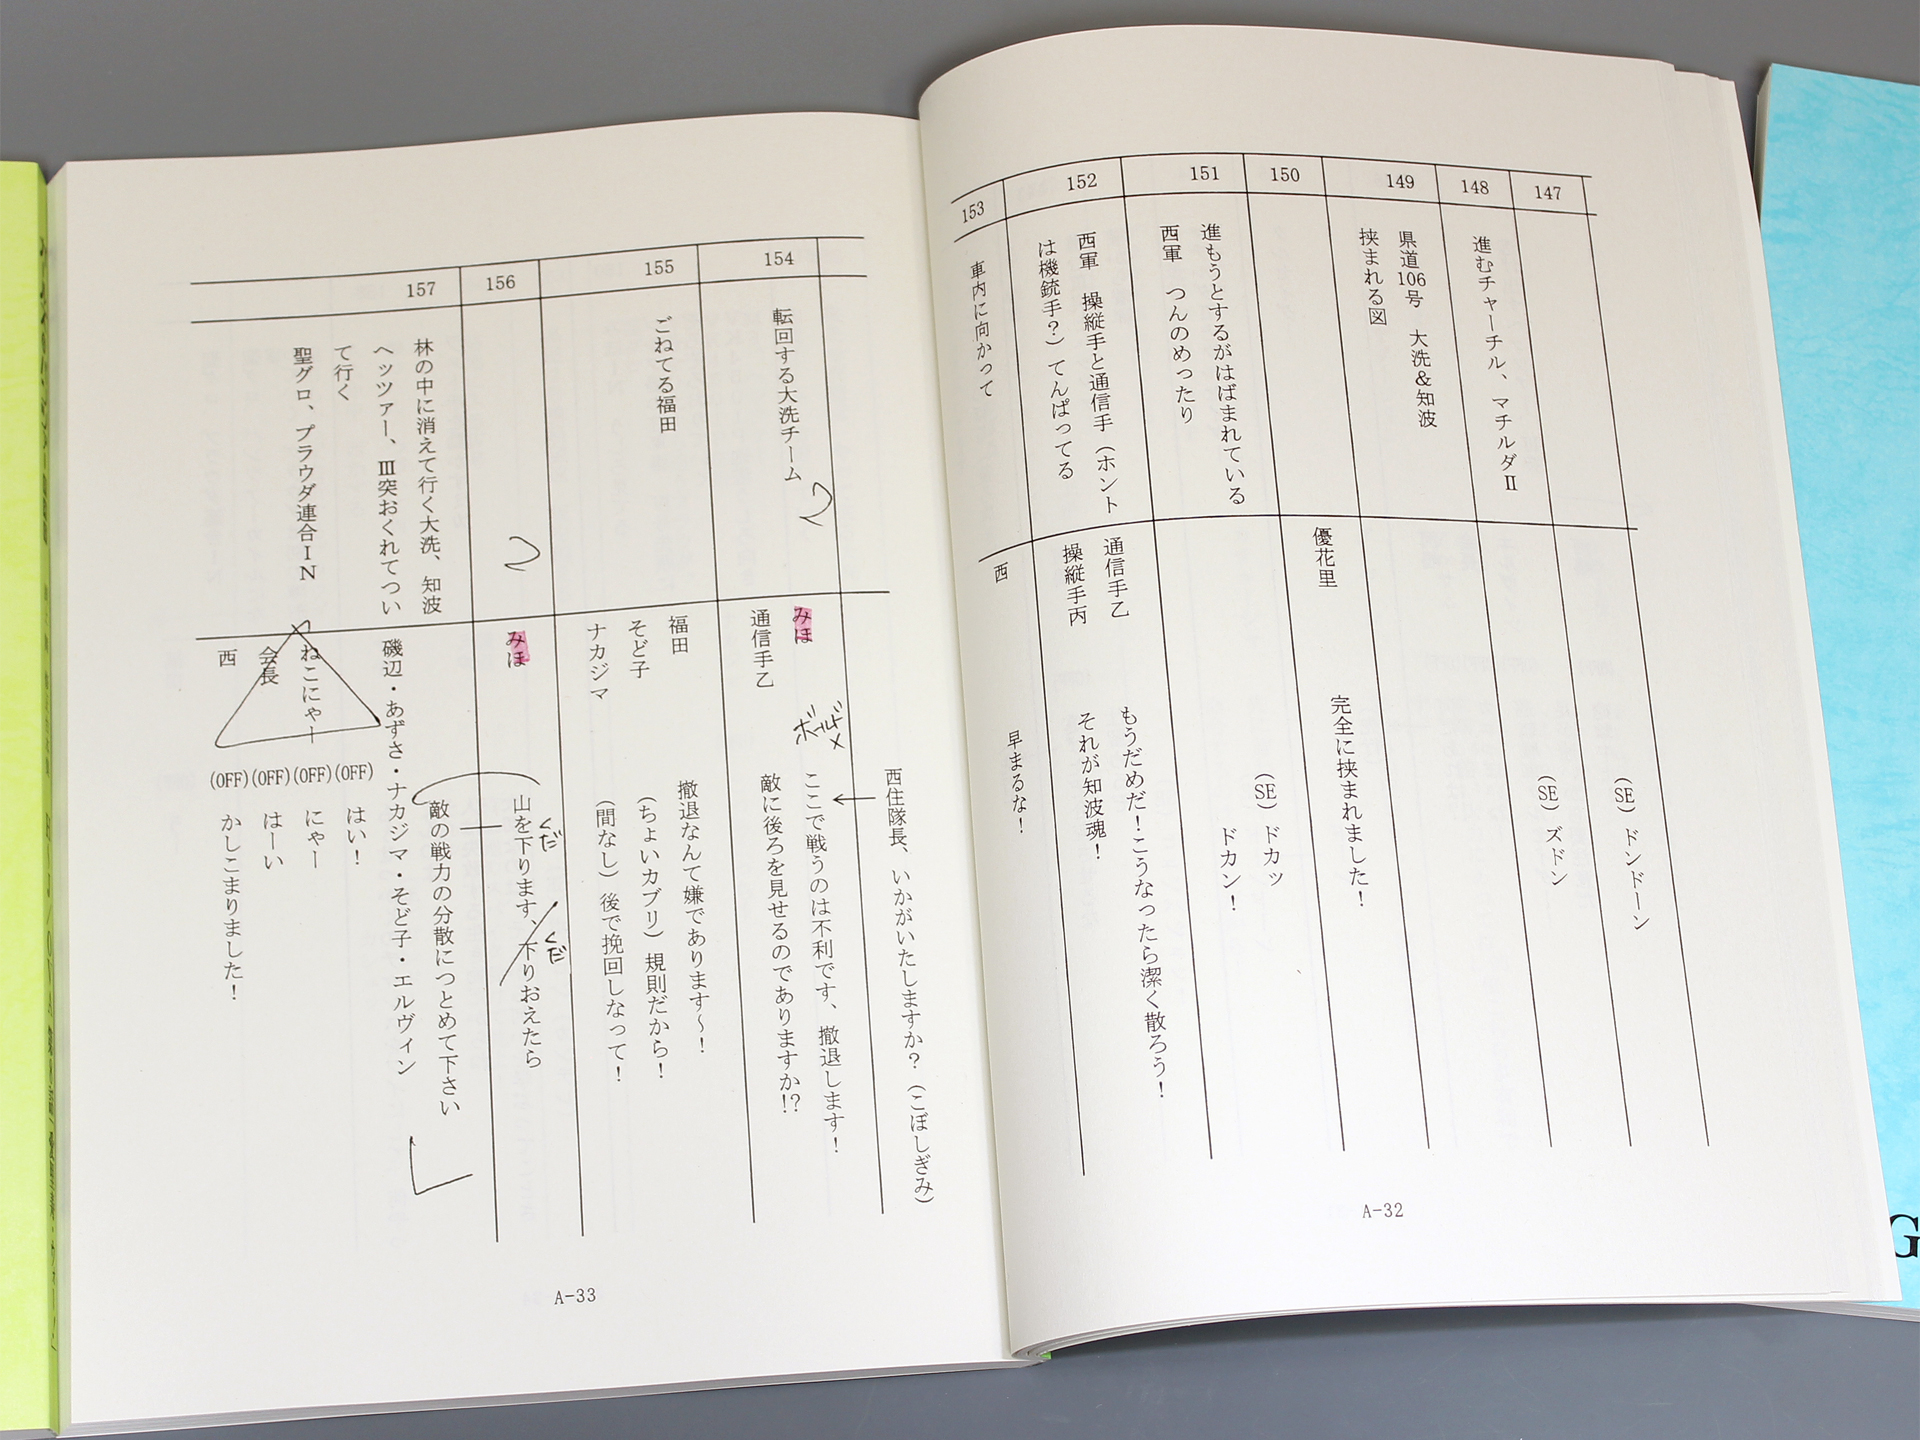 147
(SE) ドンドーン
148
進むチャーチル、マチルダⅡ
(SE) ズドン
149
県道106号 大洗&知波
挟まれる図
150
優花里 完全に挟まれました!
(SE) ドカッ
151
進もうとするがはばまれている
西軍 つんのめったり
ドカン!
152
西軍 操縦手と通信手(ホント
は機銃手?)てんぱってる
通信手乙 もうだめだ!こうなったら潔く散ろう!
操縦手丙 それが知波魂!
153
車内に向かって
西 早まるな!
A-32
西住隊長、いかがいたしますか?(こぼしぎみ)
154
転回する大洗チーム
みほ ここで戦うのは不利です、撤退します!
ボールド×
通信手乙 敵に後ろを見せるのでありますか!?
155
ごねてる福田
福田 撤退なんて嫌であります〜!
そど子 (ちょいカブリ)規則だから!
ナカジマ (間なし)後で挽回しなって!
156
みほ 山を下ります、下りおえたら
くだ
くだ
敵の戦力の分散につとめて下さい
157
林の中に消えて行く大洗、知波
ヘッツァー、Ⅲ突おくれてつい
て行く
聖グロ、プラウダ連合IN
磯辺・あずさ・ナカジマ・そど子・エルヴィン
(OFF) はい!
ねこにゃー (OFF) にゃー
会長 (OFF) はーい
西 (OFF) かしこまりました!
A-33
G